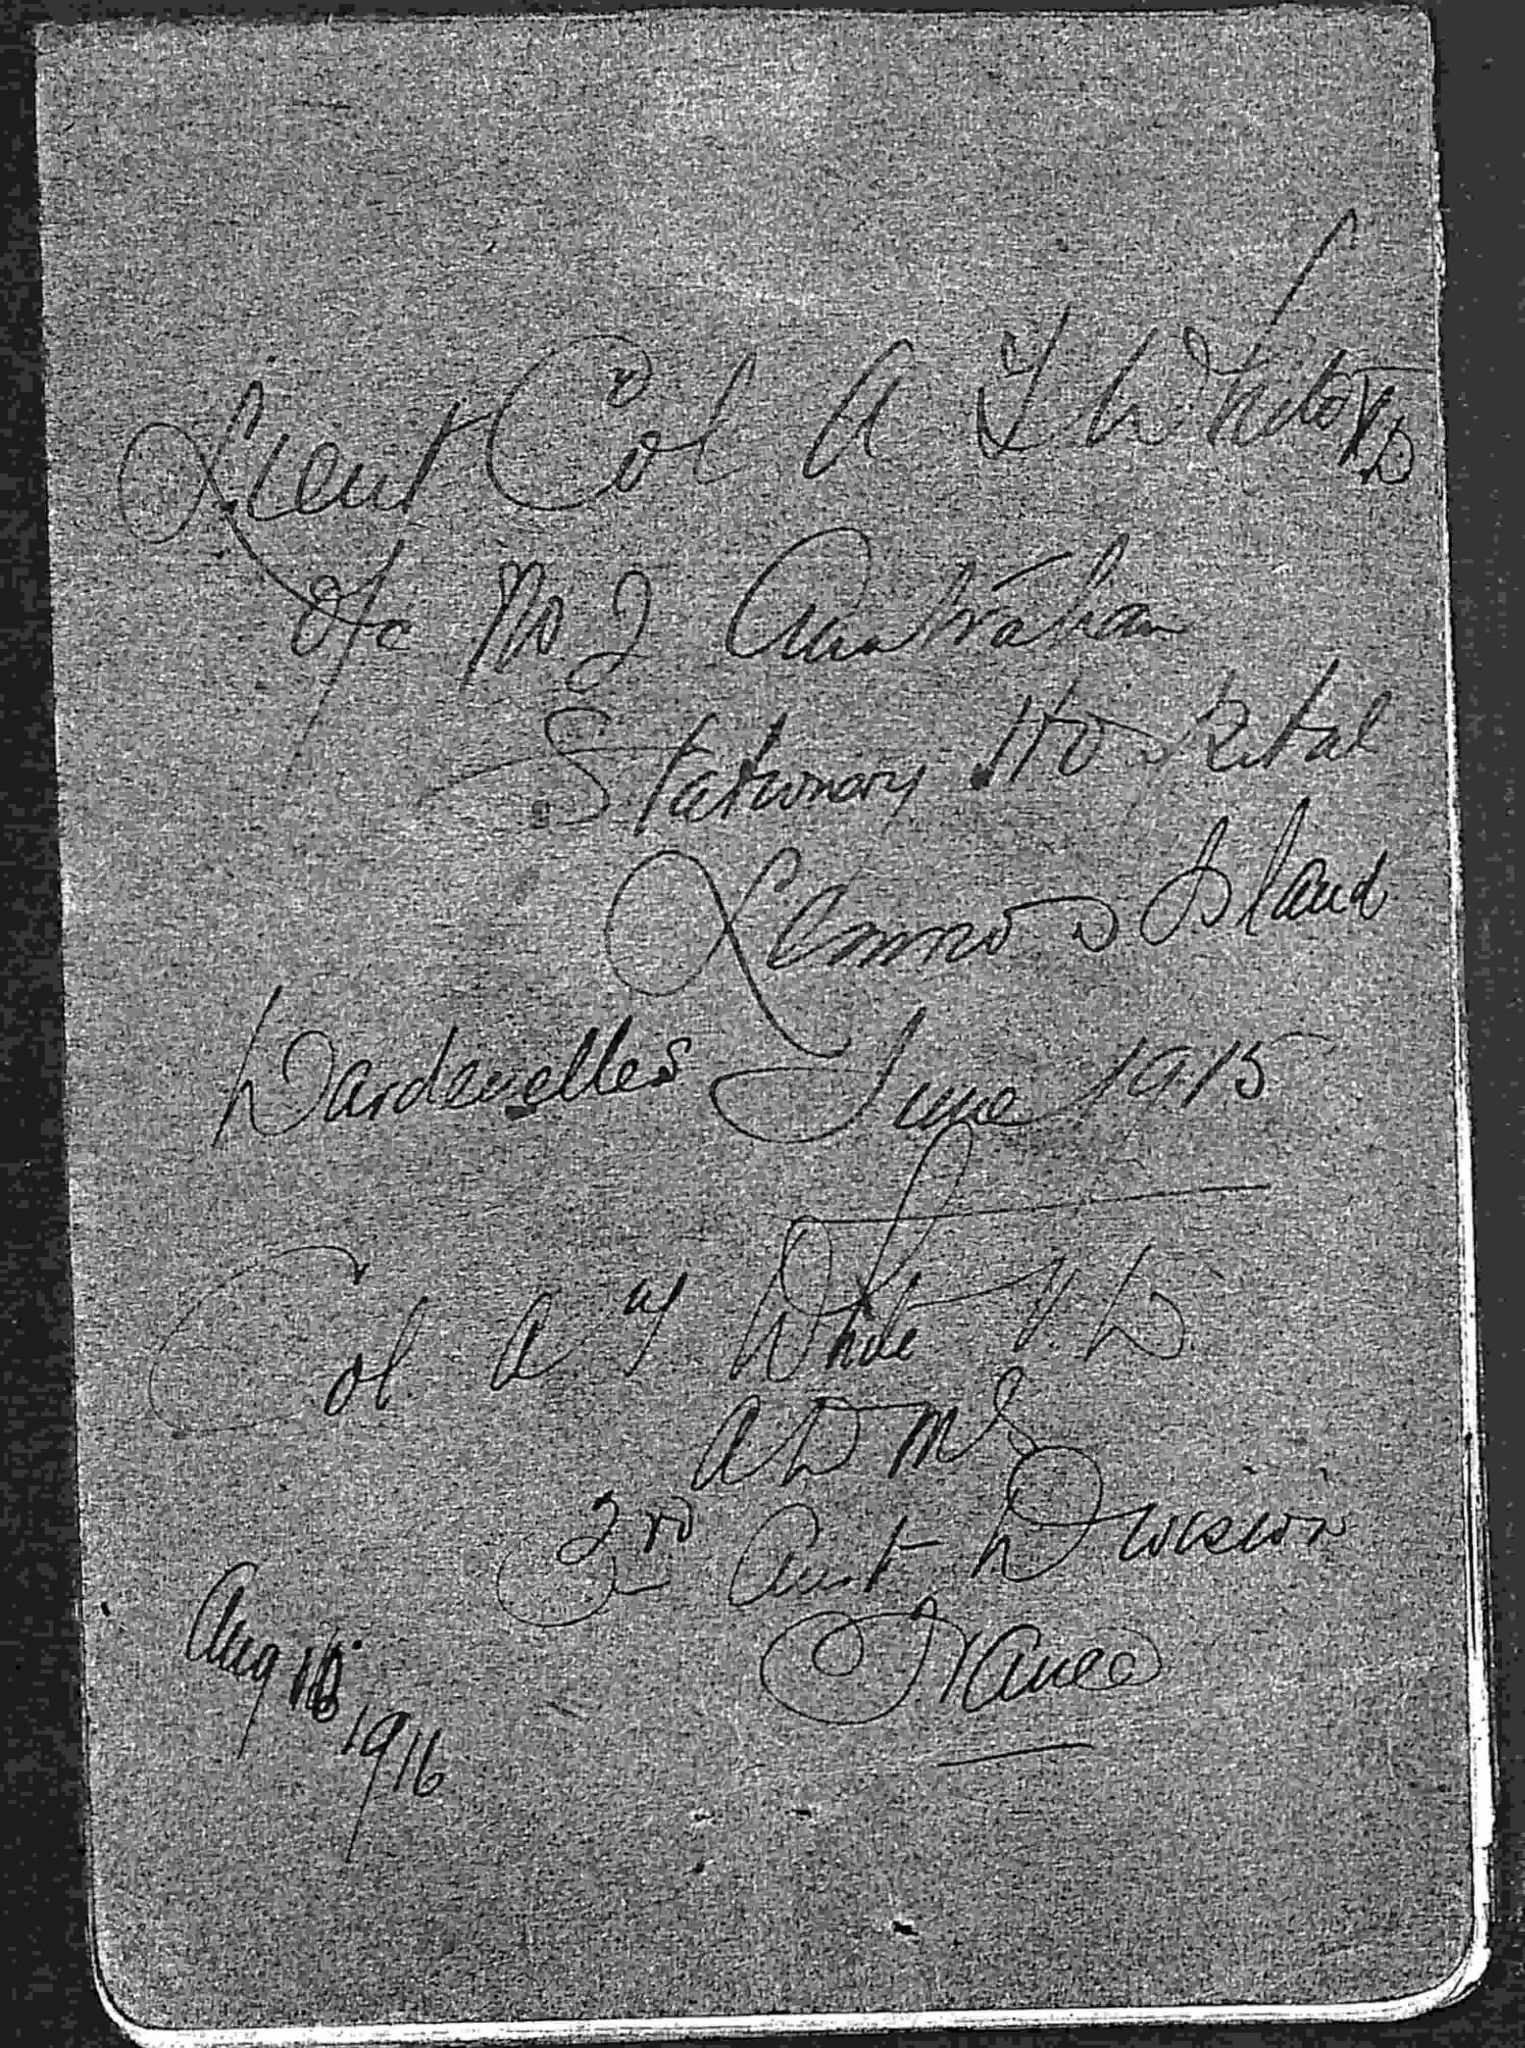 Lieut Col A T White VD
O/c No 2 Australian
Stationary Hospital
Lemnos Island
Dardenelles June 1915
Col A T White V.D.
A D M S
3rd Aust Division
France
Aug 1916